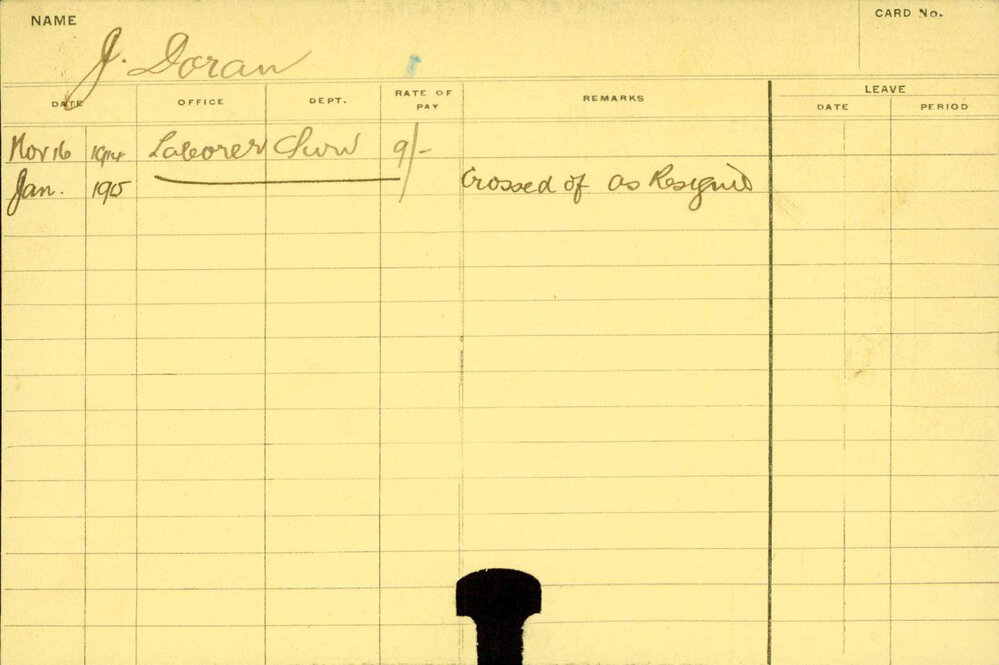 NAME
J. Doran
CARD No.
DATE OFFICE DEPT. RATE OF PAY REMARKS LEAVE
DATE PERIOD
Nov 16 1914 Laborer 9/-
Jan. 1915 Crossed of as Resigned